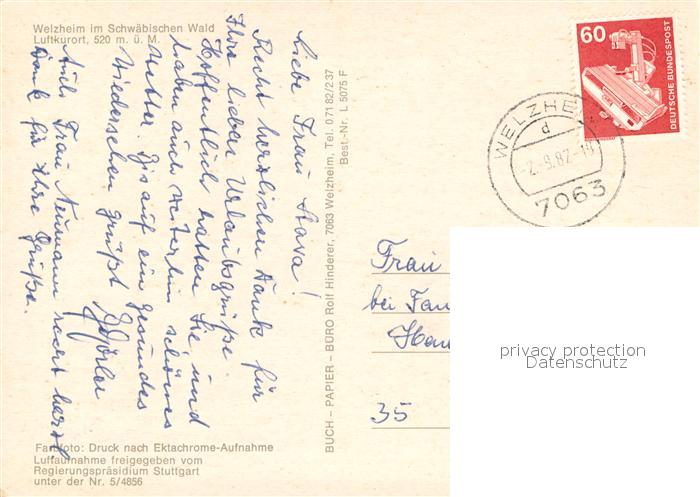 Welzheim im Schwäbischen Wald
Luftkurort, 520 m. ü. M.
Liebe Frau
Recht herzlichen Dank für
Ihre lieben Urlaubsgrüße.
Hoffentlich hatten Sie, und
haben auch weiterhin schönes
Wetter. Bis auf ein gesundes
Wiedersehen grüßt
Auch Frau Neumann recht herzl.
Dank für Ihre Grüße.
Farbfoto: Druck nach Ektachrome-Aufnahme
Luftaufnahme freigegeben vom
Regierungspräsidium Stuttgart
unter der Nr. 5/4856
BUCH – PAPIER – BÜRO Rolf Hinderer, 7063 Welzheim, Tel. 07182/237
Best.-Nr. L 5075 F
60
DEUTSCHE BUNDESPOST
WELZHEI
d
-2.-9.82-18
7063
Frau
bei Fam
35
privacy protection
Datenschutz